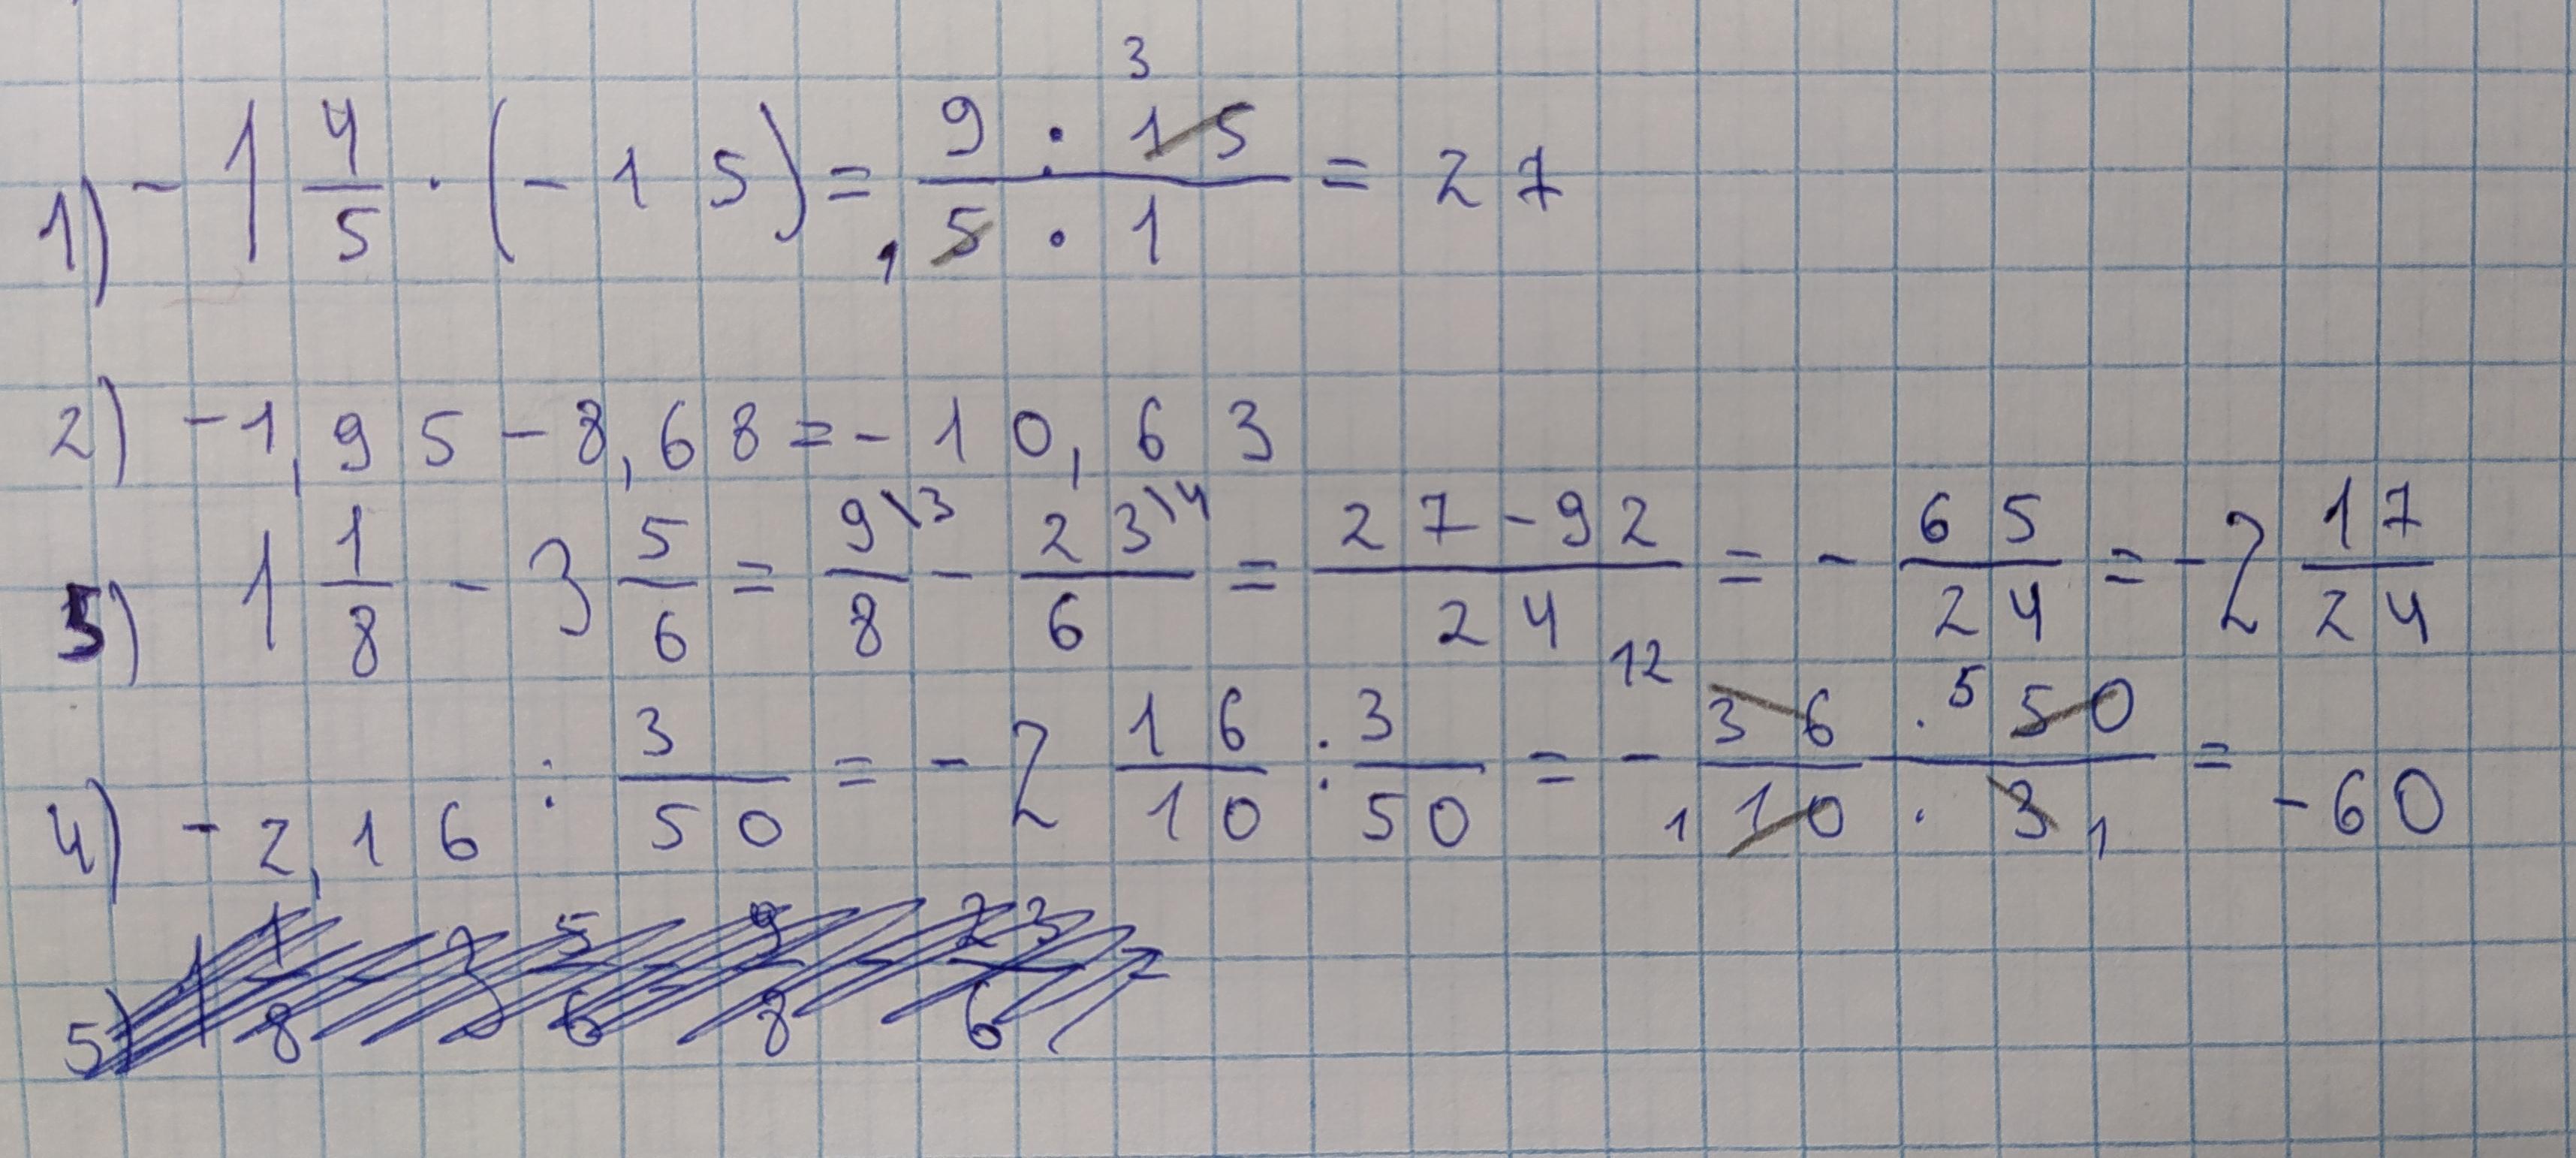 1) -1 4/5 · (-15) = 9 · 15 3 / 1 5 · 1 = 27
2) -1,95 - 8,68 = -10,63
3) 1 1/8 - 3 5/6 = 9\3/8 - 23\4/6 = 27-92/24 = - 65/24 = -2 17/24
4) -2,16 : 3/50 = -2 16/10 : 3/50 = - 12 36 · 5 50 / 1 10 · 3 1 = -60
5) 1 1/8 - 3 5/6 = 9/8 - 23/6